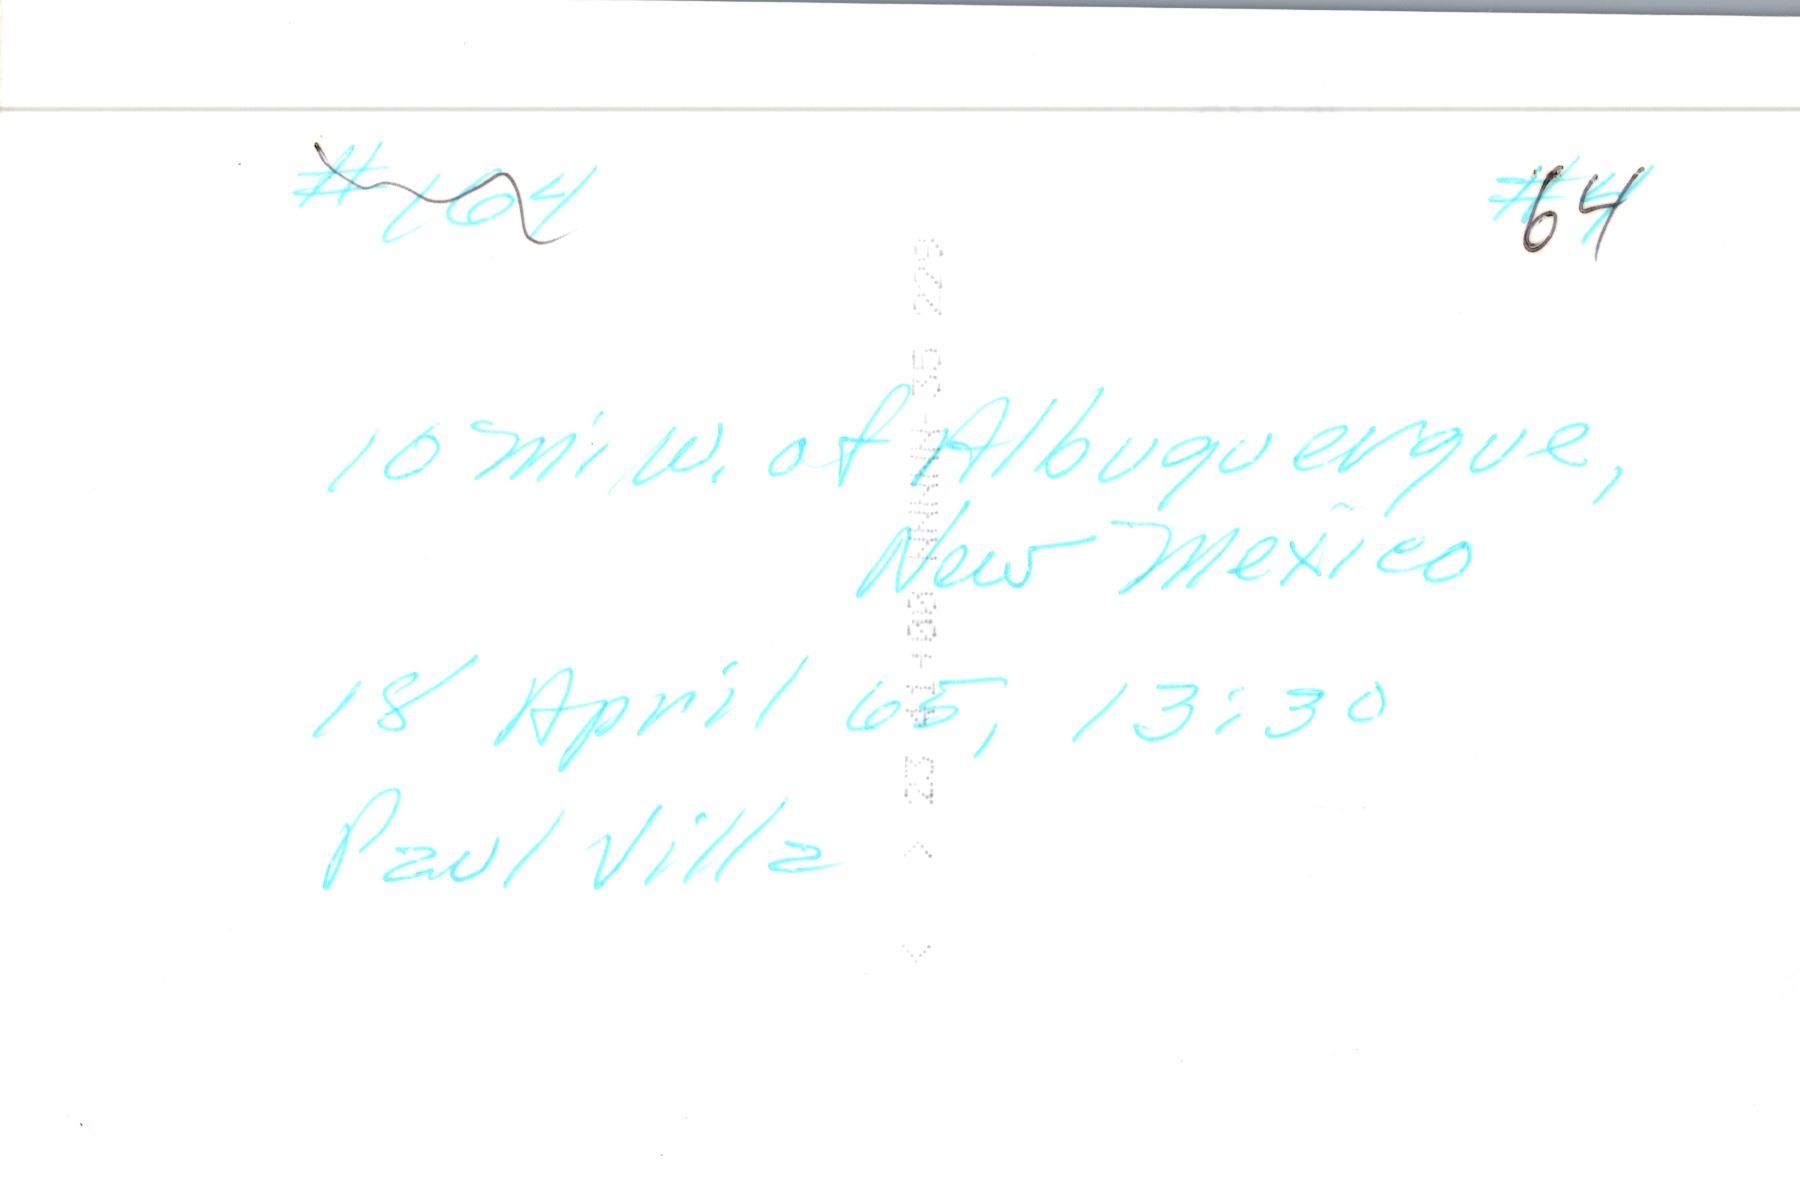 #164
64
10 mi W. of Albuquerque,
New Mexico
18 April 65, 13:30
Paul Villa